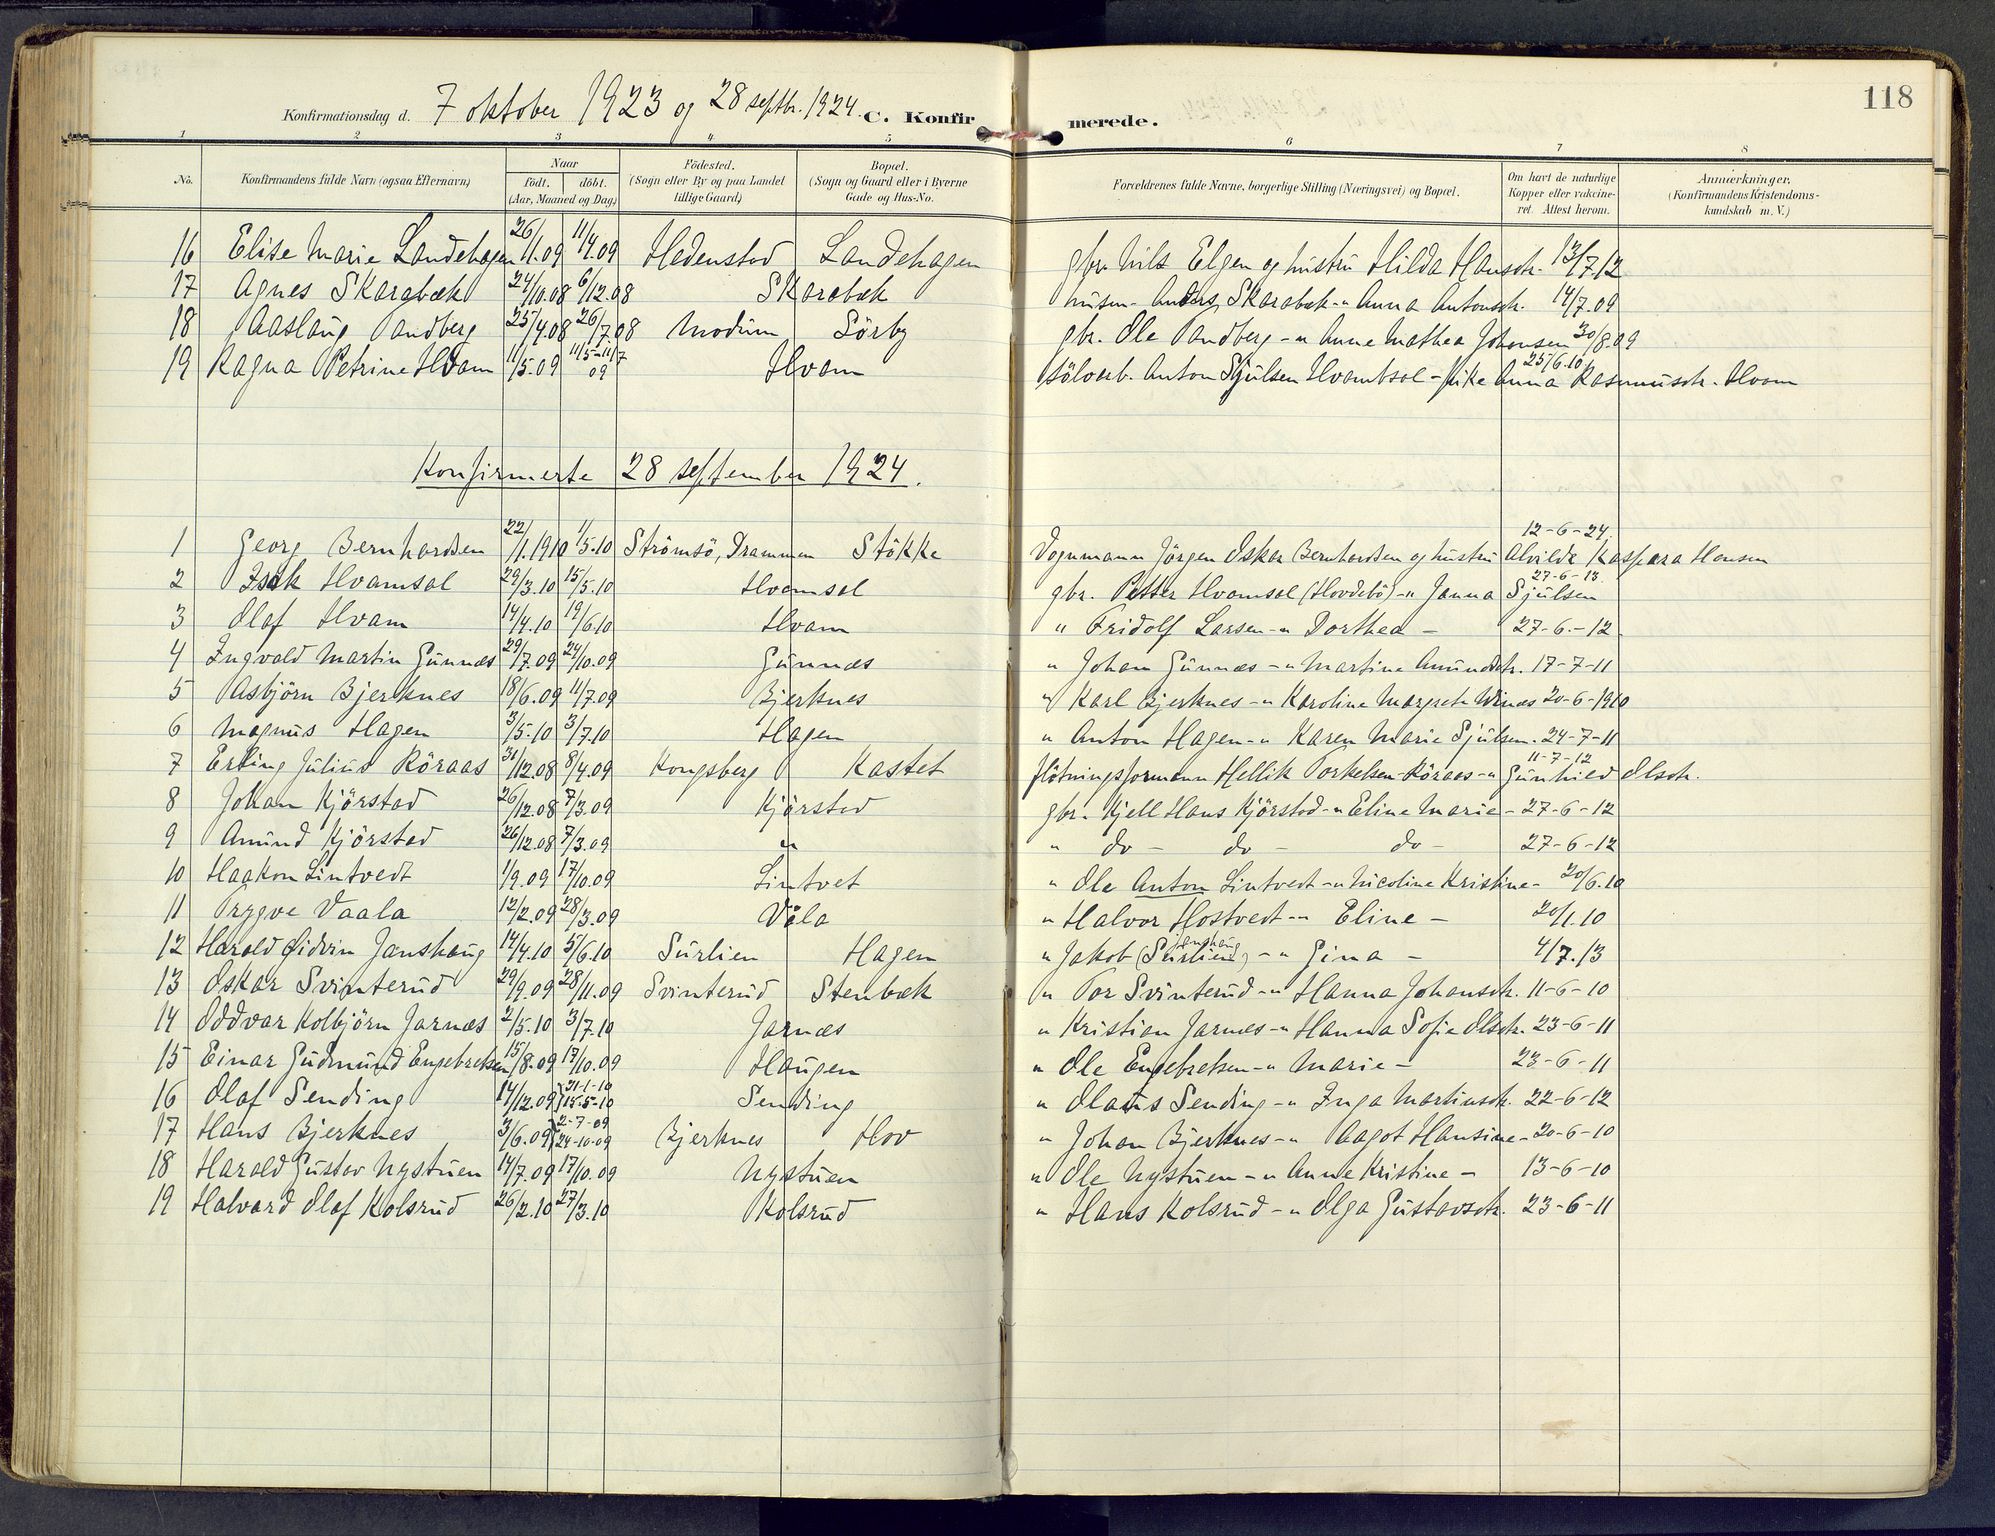 118
Konfirmationsdag d. 7 oktober 1923 og 28 septbr. 1924. C. Konfirmerede.
1 2 3 4 5 6 7 8
No. Konfirmandens fulde Navn (ogsaa Efternavn) Naar født. døbt. (Aar, Maaned og Dag) Födested. (Sogn eller By og paa Landet tillige Gaard) Bopæl. (Sogn og Gaard eller i Byerne Gade og Hus-No. Forældrenes fulde Navne, borgerlige Stilling (Næringsvei) og Bopæl. Om havt de naturlige Kopper eller vakcineret. Attest herom. Anmærkninger. (Konfirmandens Kristendomskundskab m. V.)
16 Elise Marie Landehagen 26/11.09 11/4.09 Hedenstad Landehagen gbr. Nils Elgen og hustru Hilda Hansdtr. 13/7.12
17 Agnes Skarabæk 24/10.08 6/12.08 Skarabæk husm. Anders Skarabæk -„ Anna Antonsdtr. 14/7.09
18 Aaslaug Sandberg 25/4.08 26/7.08 Modum Sörby gbr. Ole Sandberg -„ Anne Mathea Johansen 30/8.09
19 Ragna Petrine Hvam 11/5.09 11/5-11/7 09 Hvam sölvarb. Anton Sjulsen Hvambsal - pike Anna Rasmusdtr. Hvam 25/6.10
Konfirmerte 28 september 1924.
1 Georg Bernhardsen 22/1.1910 1/5.10 Strömsö, Drammen Stökke Vognmann Jörgen Oskar Bernhardsen og hustru Alvilde Kaspara Hansen 12-6-24
2 Isak Hvamsal 29/3.10 15/5.10 Hvamsal gbr. Petter Hvamsal (Hovdebö) -„ Janna Sjulsen 27-6-13
3 Olaf Hvam 14/4.10 19/6.10 Hvam „ Fridolf Larsen -„ Dorthea - 27-6-12
4 Ingvald Martin Gunnæs 29/7.09 24/10.09 Gunnæs „ Johan Gunnæs -„ Martine Amundsdtr. 17-7-11
5 Asbjörn Bjerknes 18/6.09 11/7.09 Bjerknes „ Karl Bjerknes -„ Karoline Margrete Wenæs 20-6-1910
6 Magnus Hagen 3/5.10 3/7.10 Hagen „ Anton Hagen -„ Karen Marie Sjulsen 24-7-11
7 Erling Julius Röraas 31/12.08 8/4.09 Kongsberg Kastet flötningsformann Hellik Torkelsen Röraas -„ Gunhild Olsdtr. 11-7-12
8 Johan Kjörstad 26/12.08 7/3.09 Kjörstad gbr. Kjell Hans Kjörstad -„ Eline Marie - 27-6-12
9 Amund Kjörstad 26/12.08 7/3.09 „ „ do - do - do - 27-6-12
10 Haakon Lintvedt 1/9.09 17/10.09 Lintvet „ Ole Anton Lintvedt -„ Nicoline Kristine - 20/6.10
11 Trygve Vaala 12/2.09 28/3.09 Våla „ Halvor Hostvedt -„ Eline - 20/1.10
12 Harald Öidvin Janshaug 14/4.10 5/6.10 Surlien Hagen „ Jakob (Surlien) Janshaug -„ Gina - 4/7.13
13 Oskar Svinterud 29/9.09 28/11.09 Svinterud Stenbæk „ Tor Svinterud -„ Hanna Johansdtr. 11-6-10
14 Oddvar Kolbjörn Jarnæs 2/5.10 3/7.10 Jarnæs „ Kristian Jarnæs -„ Hanna Sofie Olsdtr. 23-6-11
15 Einar Gudmund Engebretsen 15/8.09 17/10.09 Haugen „ Ole Engebretsen -„ Marie - 23-6-11
16 Olaf Sending 14/12.09 31-1-10 15-5-10 Sending „ Olaus Sending -„ Inga Martinsdtr. 22-6-12
17 Hans Bjerknes 3/6.09 2-7-09 24-10-09 Bjerknes Hov „ Johan Bjerknes -„ Aagot Hansine - 20-6-10
18 Harald Gustav Nystuen 14/7.09 17/10.09 Nystuen „ Ole Nystuen -„ Anne Kristine - 13-6-10
19 Halvard Olaf Kolsrud 26/2.10 27/3.10 Kolsrud „ Hans Kolsrud -„ Olga Gustavsdtr. 23-6-11